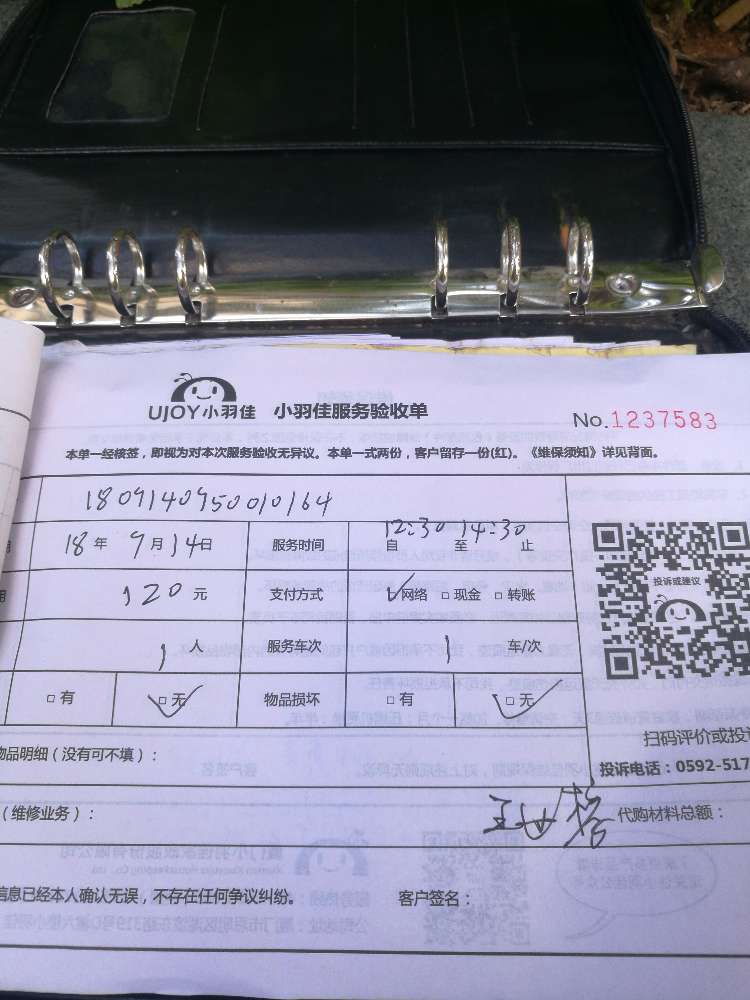 UJOY小羽佳 小羽佳服务验收单
No.1237583
本单一经核签，即视为对本次服务验收无异议。本单一式两份，客户留存一份(红)。《维保须知》详见背面。
1809140950010164
18年9月14日 服务时间 自12:30至14:30止
120元 支付方式 ☑网络 □现金 □转账
投诉或建议
1人 服务车次 1车/次
□有 ☑无 物品损坏 □有 ☑无
扫码评价或投
物品明细（没有可不填）：
投诉电话：0592-517
（维修业务）：
代购材料总额：
信息已经本人确认无误，不存在任何争议纠纷。 客户签名：